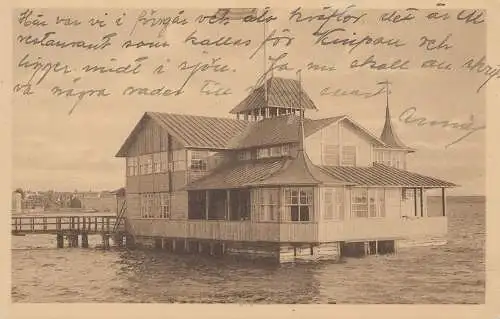 Här var vi i förrgår och åt kräftor, det är en
restaurant som kallas för Knipan och
ligger midt i sjön. Ja nu skall du
va några rader till snart